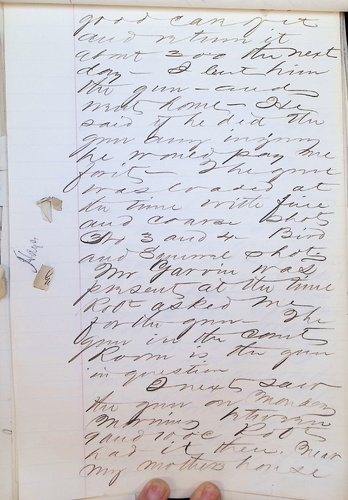 good care of it
and return it
about 3 oc the next
day - I lent him
the gun - and
went home - He
said if he did the
gun any injury
he would pay me
for it - The gun
was loaded at
the time with fine
and coarse shots
No 3 and 4 Bird
and Squirrel shots
Mr Garvin was
present at the time
Robt asked me
for the gun - The
gun in the Court
Room is the gun
in question
I next saw
the gun on Monday
Morning between
9 and 10 oc Robt
had it then. Near
my mothers house